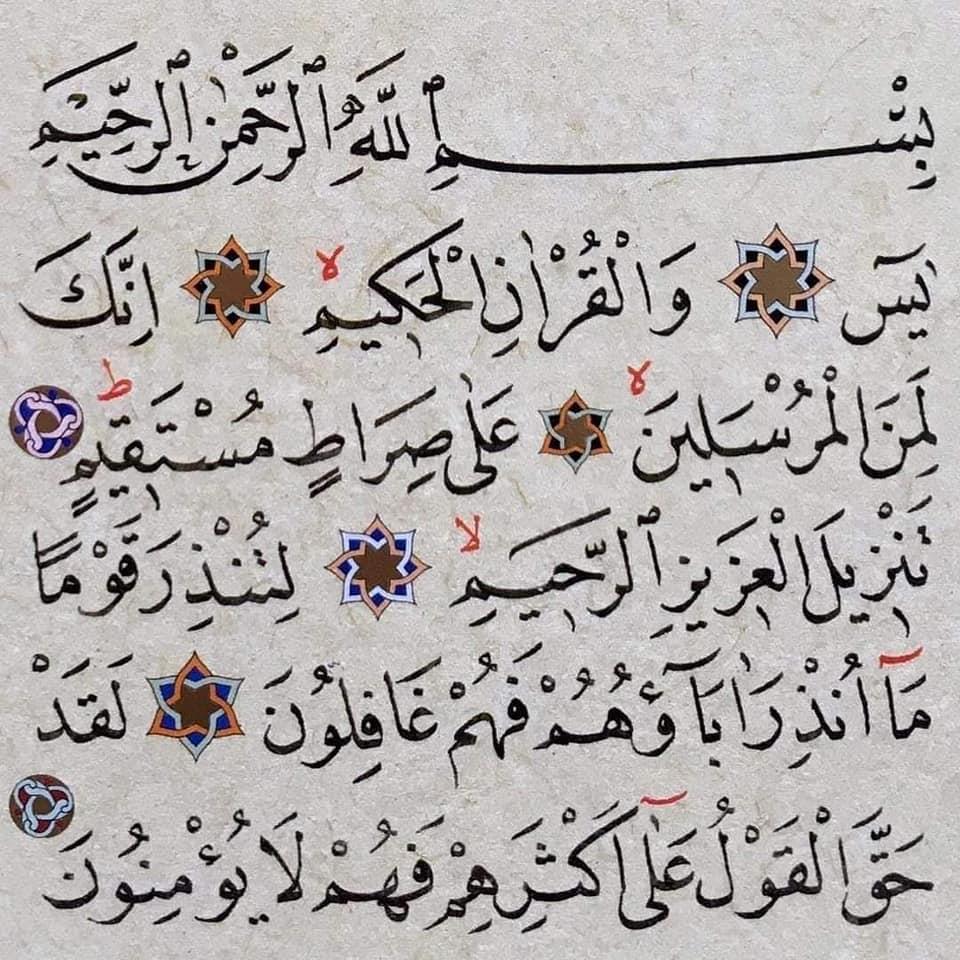 بِسْمِ ٱللَّهِ ٱلرَّحْمٰنِ ٱلرَّحِيْمِ
يٰسٓ وَالْقُرْاٰنِ الْحَكِيمِ ۙ اِنَّكَ
لَمِنَ الْمُرْسَلِينَ ۙ عَلٰى صِرَاطٍ مُسْتَقِيمٍ ط
تَنْزِيلَ الْعَزِيزِ ٱلرَّحِيمِ ۙ لِتُنْذِرَ قَوْمًا
مَٓا اُنْذِرَ اٰبَٓاؤُهُمْ فَهُمْ غَافِلُونَ لَقَدْ
حَقَّ الْقَوْلُ عَلٰٓى اَكْثَرِهِمْ فَهُمْ لَا يُؤْمِنُونَ